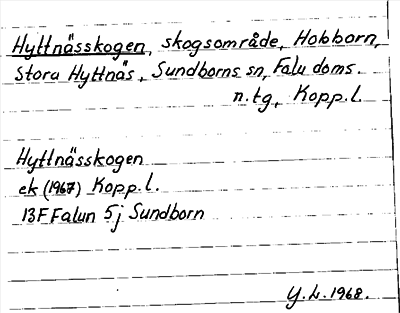 Hyttnässkogen, skogsområde, Hobborn,
Stora Hyttnäs, Sundborns sn, Falu doms.
n.tg, Kopp.l.
Hyttnässkogen
ek (1967) Kopp.l.
13F Falun 5j Sundborn
Y.L. 1968.